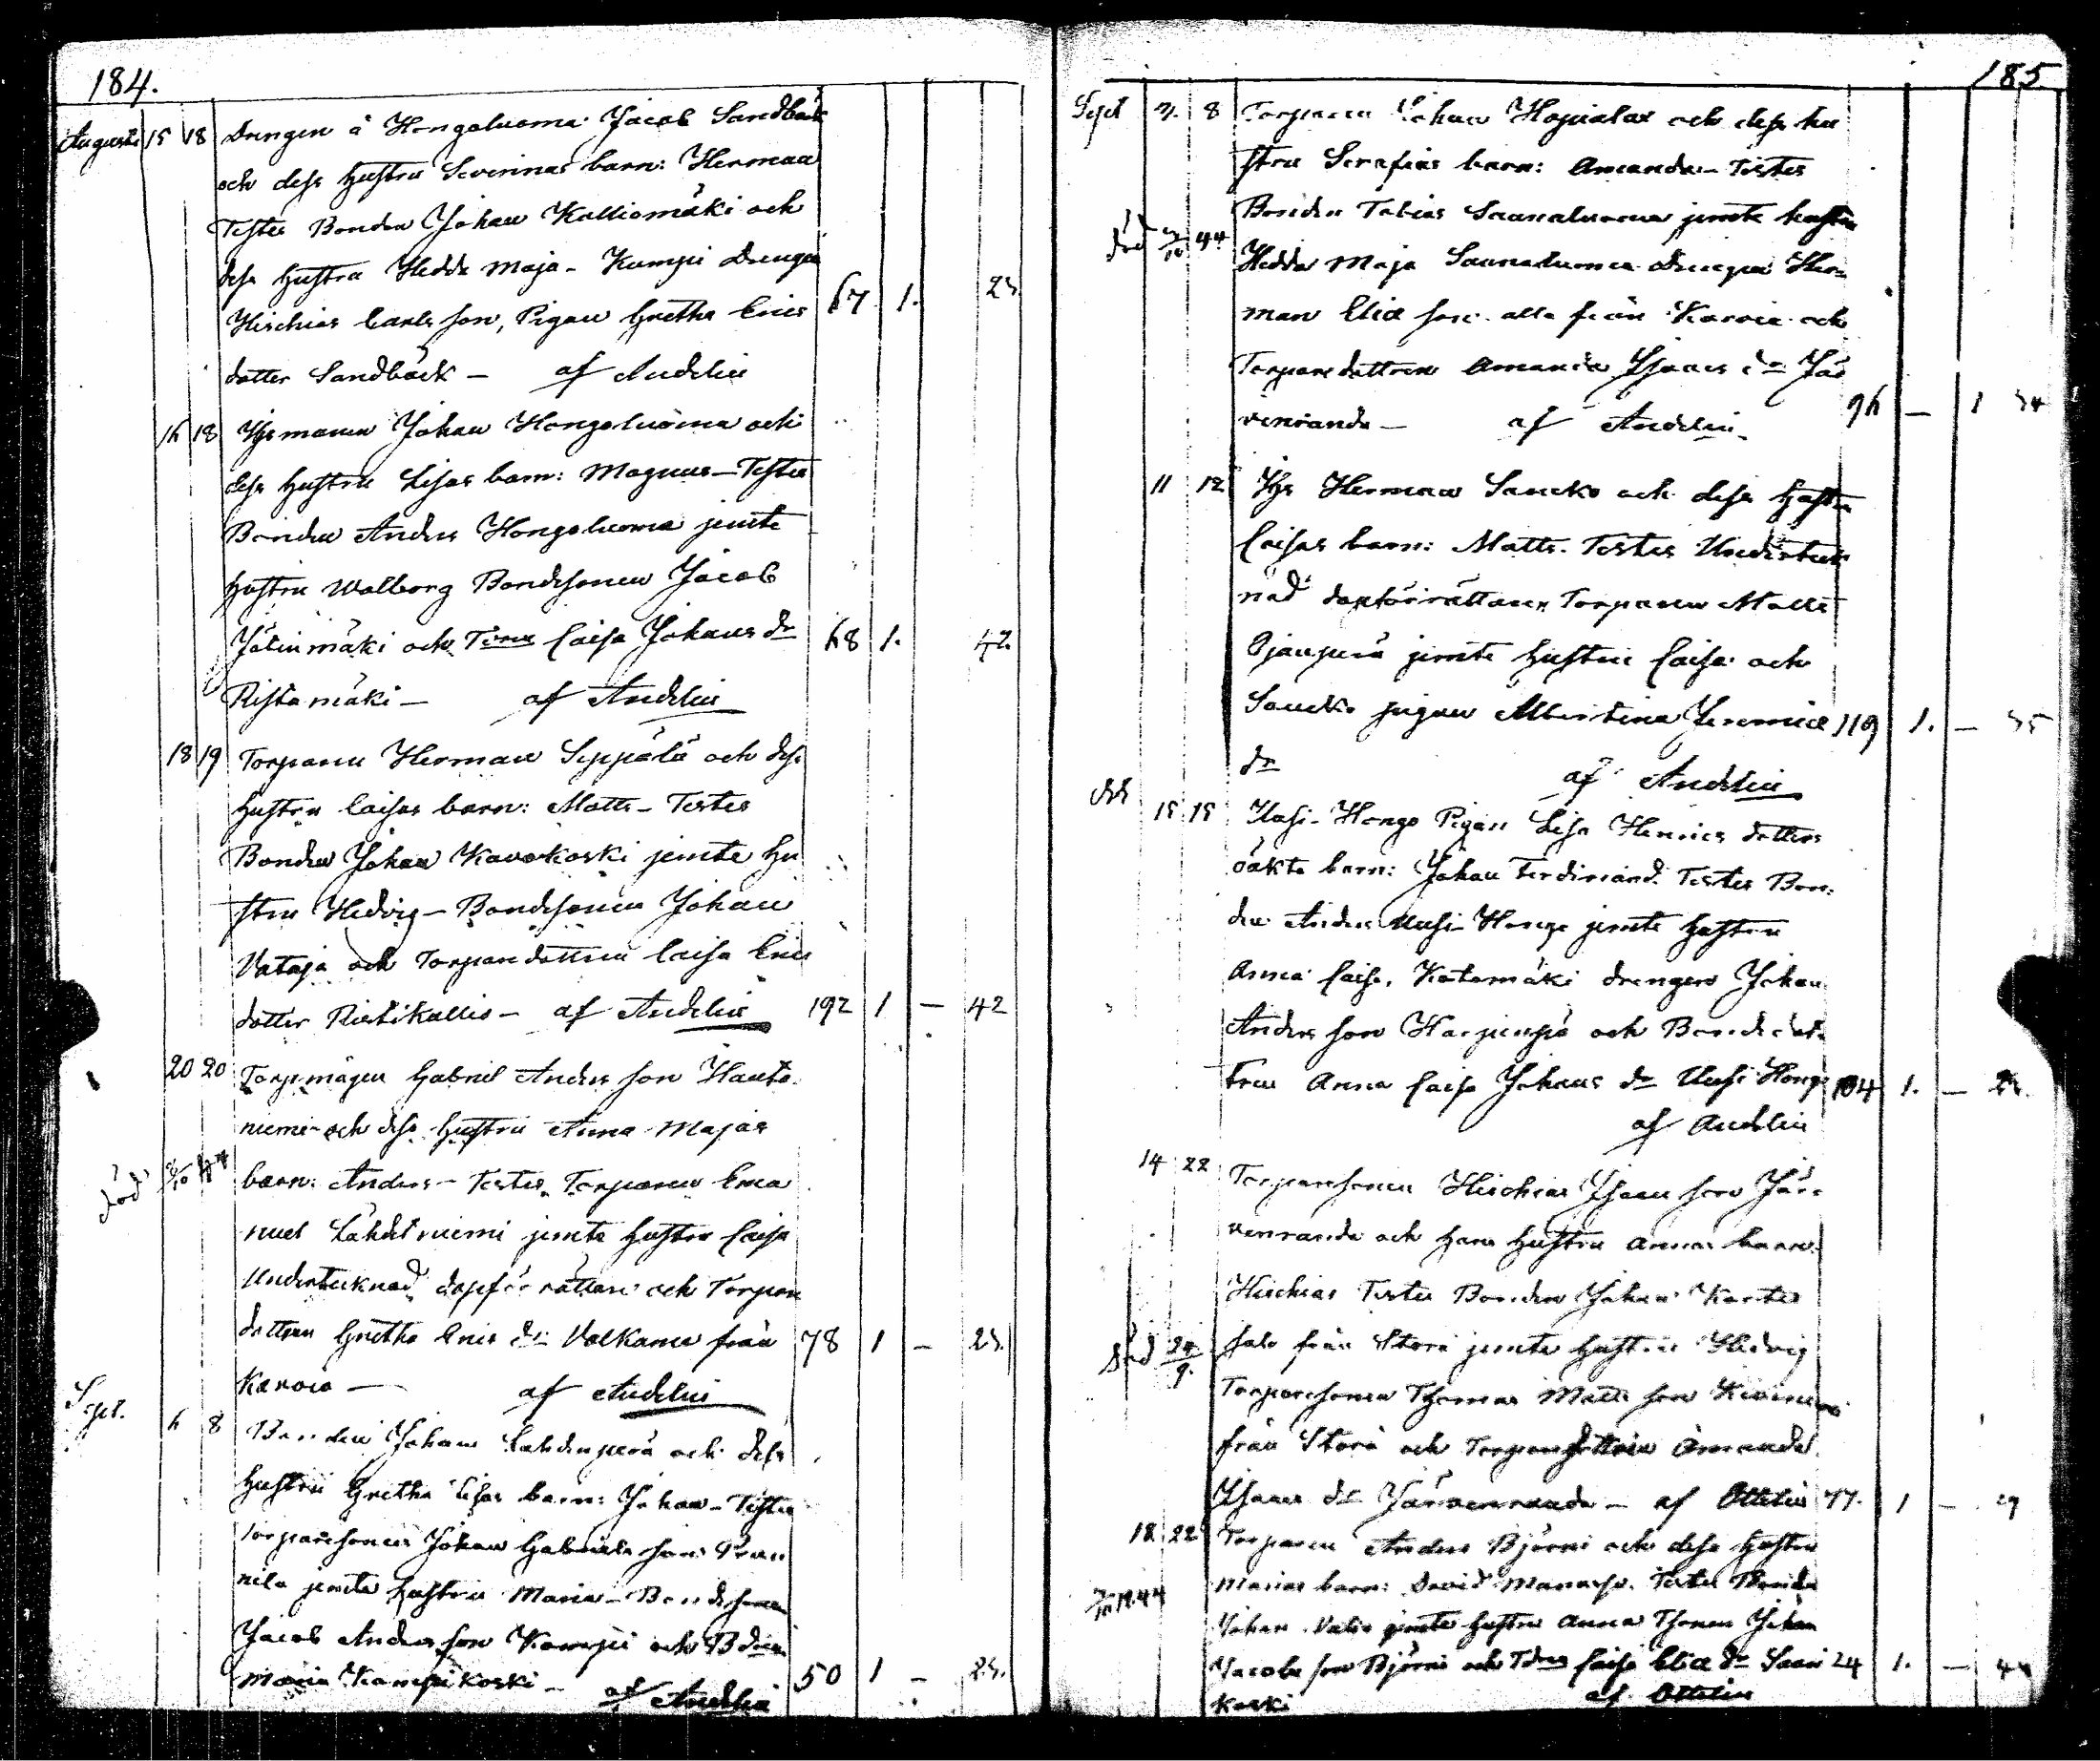 184.
Augusti 15 18 Drengen å Hongoluoma Jacob Sandbäck
och dess hustru Severinas barn: Herman
Testes Bonden Johan Kalliomäki och
dess hustru Hedda Maja - Kumpu Drengen
Hischias Carls son, Pigan Gretha Erics 67 1. 23
dotter Sandbäck - af Andelin
16 18 Johan Hongoluoma och
dess hustru Lisas barn: Magnus - Testes
Bonden Anders Hongoluoma jemte
hustru Walborg Bondesonen Jacob
Jätinmäki och Caisa Johans dr 68 1. 42.
Ristamäki - af Andelin
18 19 Torparen Herman Seppälä och dess
hustru Caisas barn: Matts - Testes
Bonden Johan Kavokoski jemte hu
stru Hedvig - Bondesonen Johan
Vataja och Torpare dottren Caisa Erics
dotter Ristikallio - af Andelin 192 1 - 42
20 20 Torp mågen Gabriel Anders son Hauta
niemi och dess hustru Anna Majas
död barn: Anders - Testes Torparen Ema
nuel Lähdeniemi jemte hustru Caisa
Undertecknad dopförrättare och Torpare
dottren Gretha Erics dr Valkama från 78 1 - 23.
Karvia - af Andelin
Sept. 6 8 Bonden Johan Lahdenperä och dess
hustru Gretha Lisas barn: Johan - Testes
Torparesonen Johan Gabriels son
nila jemte hustru Maria - Bondesonen
Jacob Anders son Kamppi och
Maria Kamppikoski - af Andelin 50 1 - 23.
185
Sept 7. 8 Torparen Johan och dess hu
stru Serafias barn: Amanda - Testes
Bonden Tobias Saunaluoma jemte hustru
död 44 Hedda Maja Saunaluoma Drengen Her
man Elia son alla från Karvia och
Torparedottren Amanda Isaacs dr Jär
venranda - af Andelin 96 - 1 34
11 12 Herman Saucko och dess hustru
Caisas barn: Matts. Testes Underteck
nad dopförrättare, Torparen Matts
Ojanperä jemte hustru Caisa och
Saucko pigan Albertina Jeremiæ 119 1. - 35
dr af Andelin
15 15 Uusi-Hongo Pigan Lisa Henrics dotters
oäkta barn: Johan Ferdinand. Testes Bon
den Anders Uusi-Hongo jemte hustru
Anna Caisa, Katamäki drengen Johan
Anders son Harjunpä och Bondedot
tren Anna Caisa Johans dr Uusi Hongo 104 1. -
af Andelin
14 22 Torparesonen Hischias Isaac son Jär
venranda och hans hustru Annas barn
Hischias Testes Bonden Johan
salo från Storå jemte hustru Hedvig
död Torparesonen Thomas Matts son
från Storå och Torparedottren Amanda
Isaacs dr Järvenranda - af Ottelin 77. 1 - 29
18 22 Torparen Anders Björni och dess hustru
Marias barn: David Manasse. Testes Bonden
Johan jemte hustru Anna Johan
Jacobs son Björni och Caisa Elia dr Saari 24 1. -
koski af Ottelin